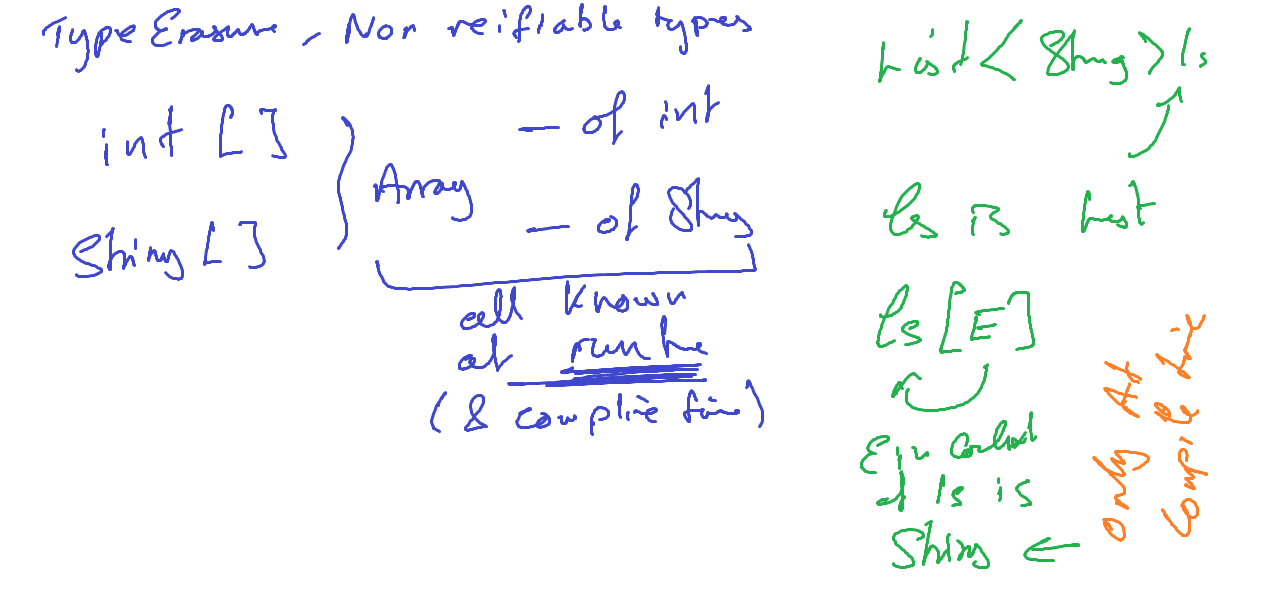 Type Erasure, Non reifiable types
int []
String []
Array
- of int
- of String
all known
at runtime
(& complie time)
List<String> ls
ls is List
ls[E]
E in context
of ls is
String ←
only At
Compile time